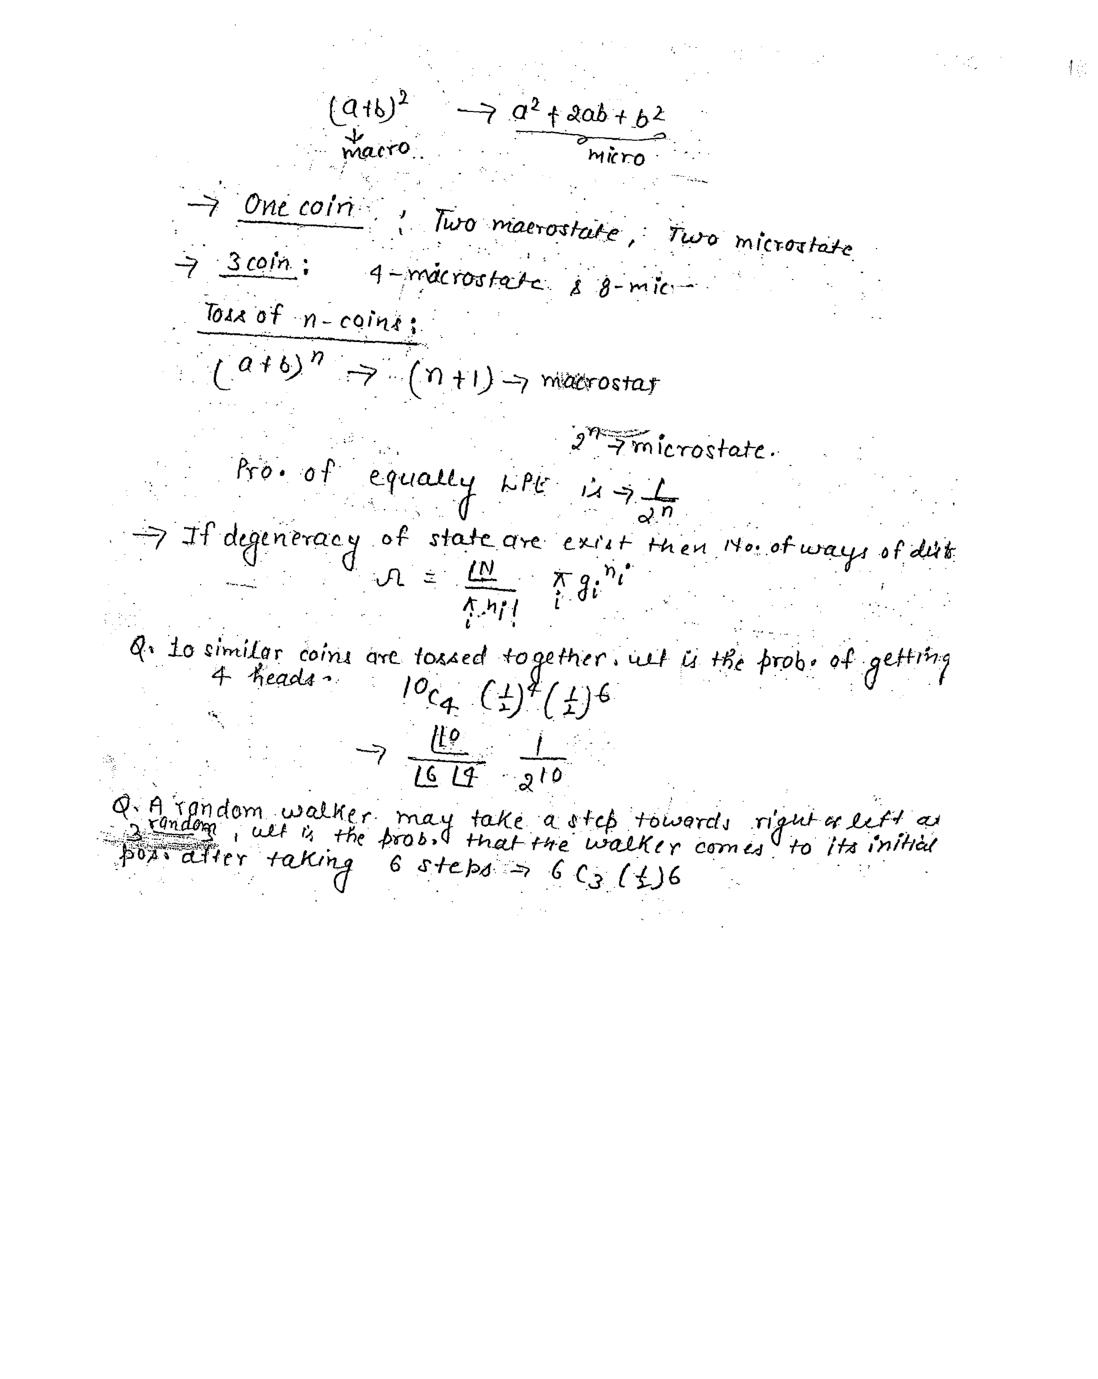 (a+b)² → a² + 2ab + b²
macro micro
→ One coin : Two macrostate, Two microstate
→ 3 coin : 4-macrostate & 8-mic-
Toss of n-coins :
(a+b)ⁿ → (n+1) → macrostat
2ⁿ → microstate.
Pro. of equally is → 1/2ⁿ
→ If degeneracy of state are exist then No. of ways of dist.
Ω = ⌊N / π_i n_i! π_i g_i^n_i
Q. 10 similar coins are tossed together. wt is the prob. of getting
4 heads. ¹⁰C₄ (1/2)⁴ (1/2)⁶
→ ⌊10 / ⌊6 ⌊4 1/2¹⁰
Q. A random walker may take a step towards right or left as
random, wt is the prob. that the walker comes to its initial
pos. after taking 6 steps ⇒ 6C₃ (1/2)6